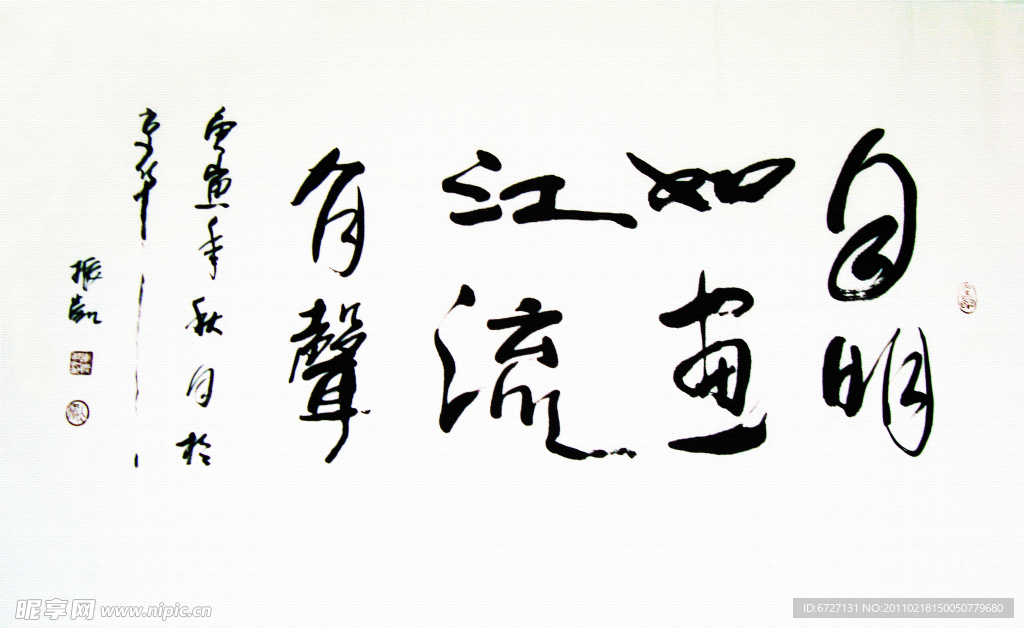 月明
如畫
江流
有聲
庚寅年秋月於
京華
振凱
昵享网 www.nipic.cn
ID:6727131 NO:20110218150050779680